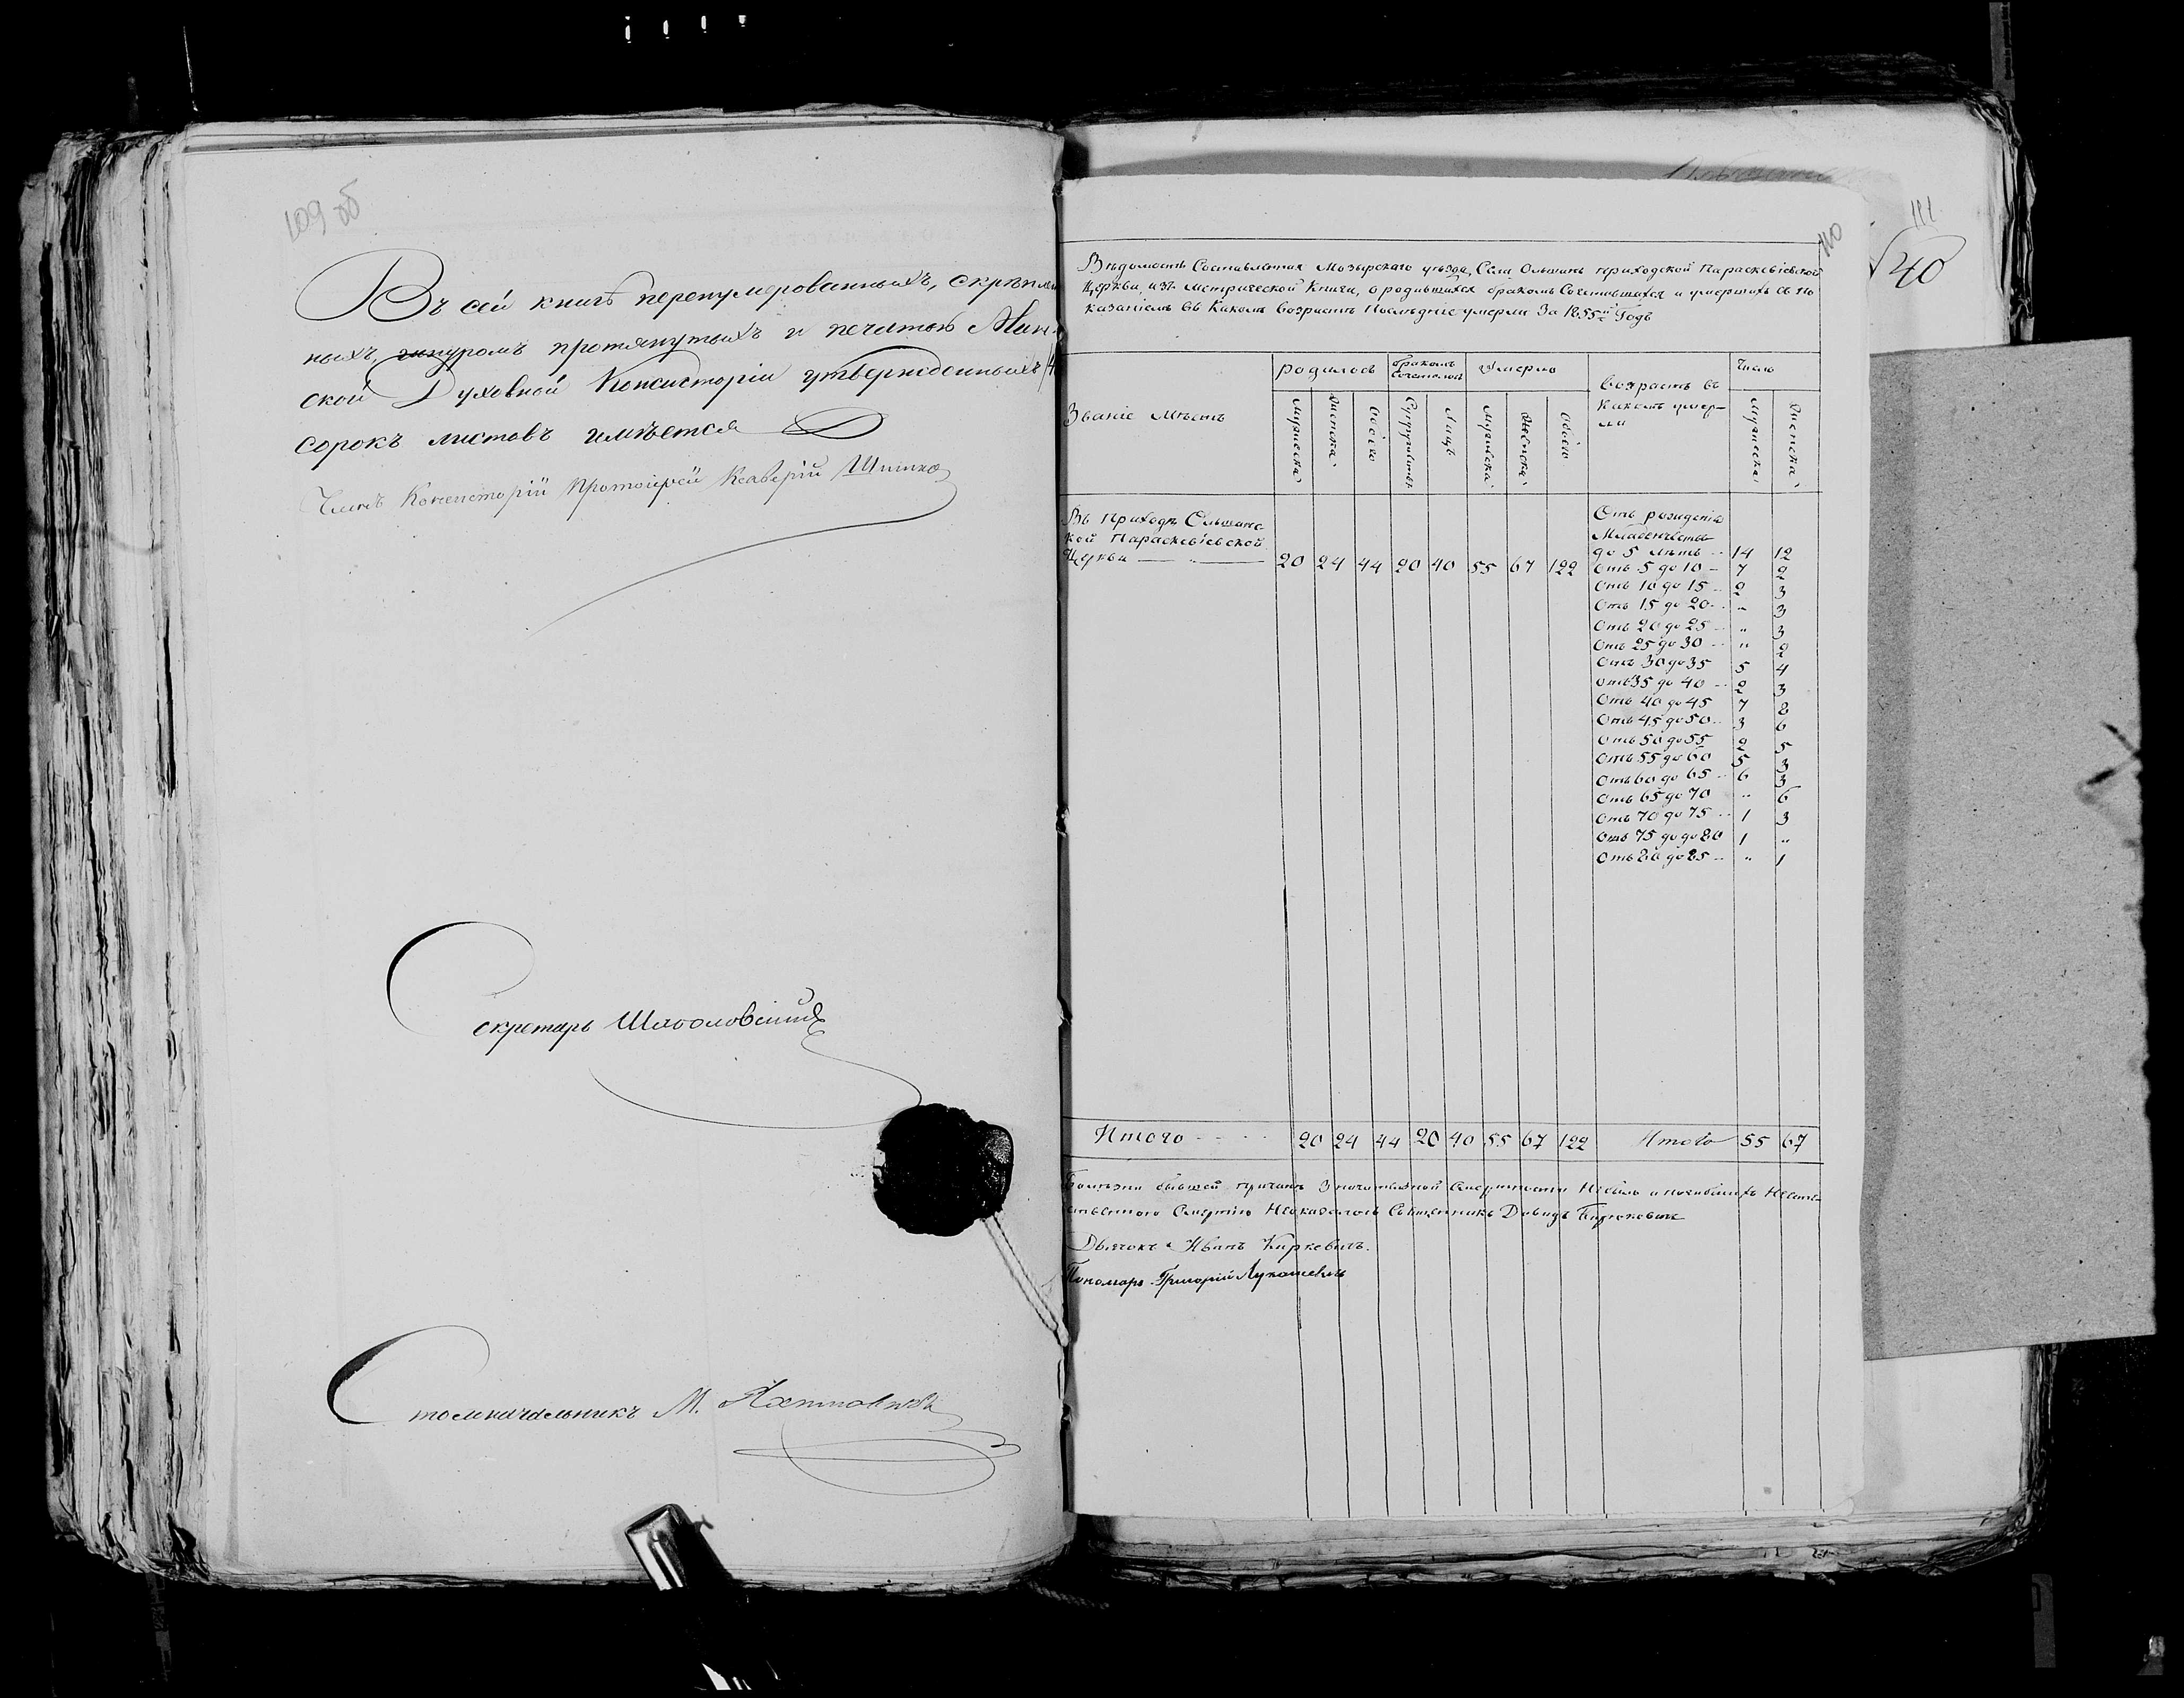 109 об
Въ сей книгѣ перенумерованныхъ, скрѣплен
ныхъ, шнуромъ протянутыхъ и печатью Мин
ской Духовной Консисторіи утвержденныхъ
сорокъ листовъ имѣется
Членъ Консисторіи Протоіерей Ксаверій
Секретарь
Столоначальникъ М.
110
111
40
Вѣдомость Составленная Мозырскаго уѣзда, Села Ольшанъ приходской Параскевіевской
Церкви, изъ метрической Книги, о родившихся бракомъ Сочетавшихся и умершихъ съ по
казаніемъ въ Какомъ возрастѣ Послѣдніе умерли За 1855й Годъ
Званіе Мѣстъ
родилось
бракомъ Сочеталось
Умерло
возрастъ въ
какомъ умер-
ли
Число
Мужеска
Женска
Обоего
Супружествъ
Лицъ
Мужеска
Женска
Обоего
Мужеска
Женска
Въ Приходѣ Ольшанс-
кой Параскевіевской
Церкви 20 24 44 20 40 55 67 122
Отъ рожденія
Младенчества
до 5 лѣтъ 14 12
Отъ 5 до 10 7 2
Отъ 10 до 15 2 3
Отъ 15 до 20 " 3
Отъ 20 до 25 " 3
Отъ 25 до 30 " 2
Отъ 30 до 35 5 4
Отъ 35 до 40 2 3
Отъ 40 до 45 7 8
Отъ 45 до 50 3 6
Отъ 50 до 55 2 5
Отъ 55 до 60 5 3
Отъ 60 до 65 6 3
Отъ 65 до 70 " 6
Отъ 70 до 75 1 3
Отъ 75 до до 80 1 "
Отъ 80 до 85 " 1
Итого 20 24 44 20 40 55 67 122 Итого 55 67
Болѣзни бывшей причинѣ Значительной Смертности Небыло и погибшихъ Неесте-
ственною Смертію Неоказалось Священникъ Давидъ
Дьячокъ Иванъ Киркевичъ.
Пономарь Григорій Лукашевичъ